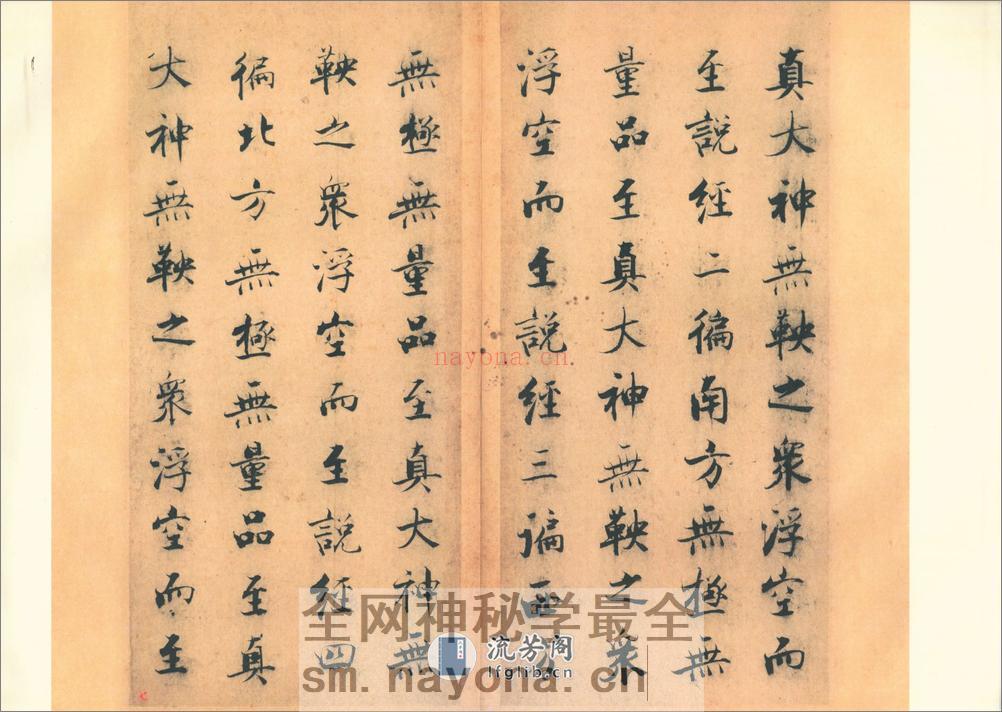 真大神無鞅之衆浮空而
至說經二徧南方無極無
量品至真大神無鞅之衆
浮空而至說經三諞西方
無極無量品至真大神無
鞅之衆浮空而至說經四
徧北方無極無量品至真
大神無鞅之衆浮空而至
nayona.cn
全网神秘学最全
流芳阁
lfglib.cn
sm.nayona.cn